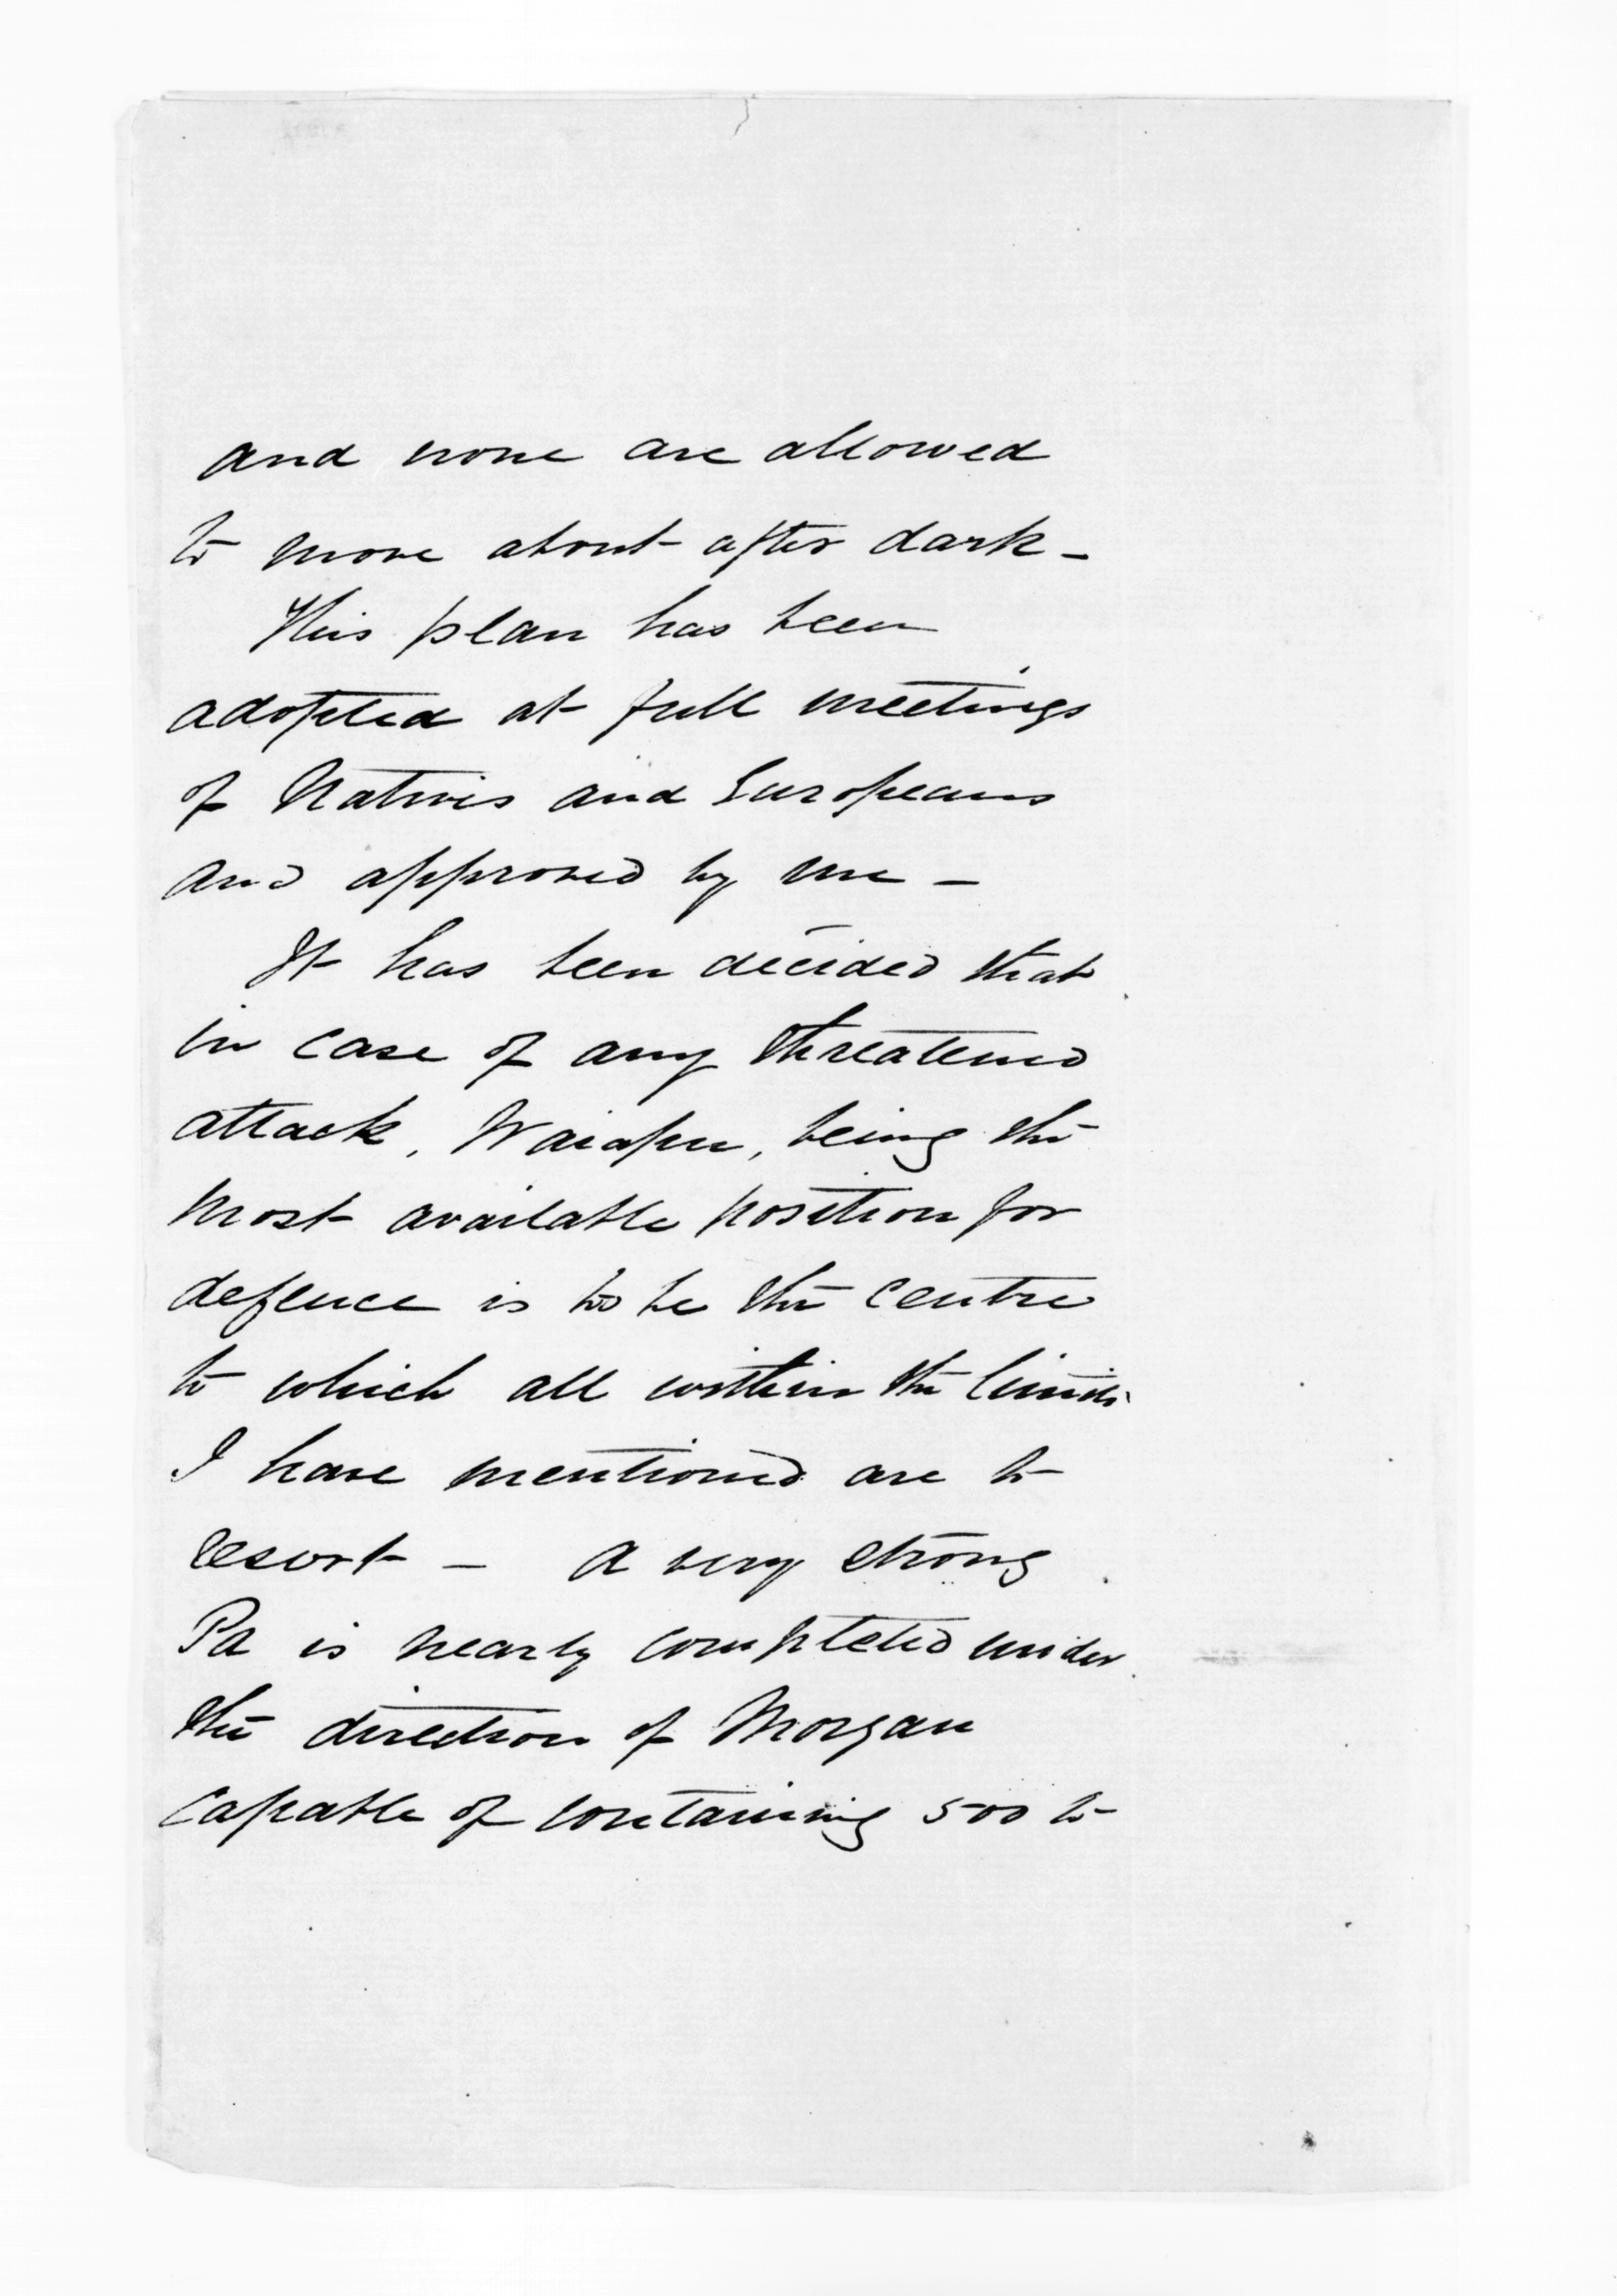 and none are allowed
to move about after dark -
This plan has been
adopted at full meetings
of Natives and Europeans
and approved by me -
It has been decided that
in case of any threatened
attack, Waiapu, being the
most available position for
defence is to be the centre
to which all within the limits
I have mentioned are to
resort - A very strong
Pa is nearly completed under
the direction of Morgan
capable of containing 500 to